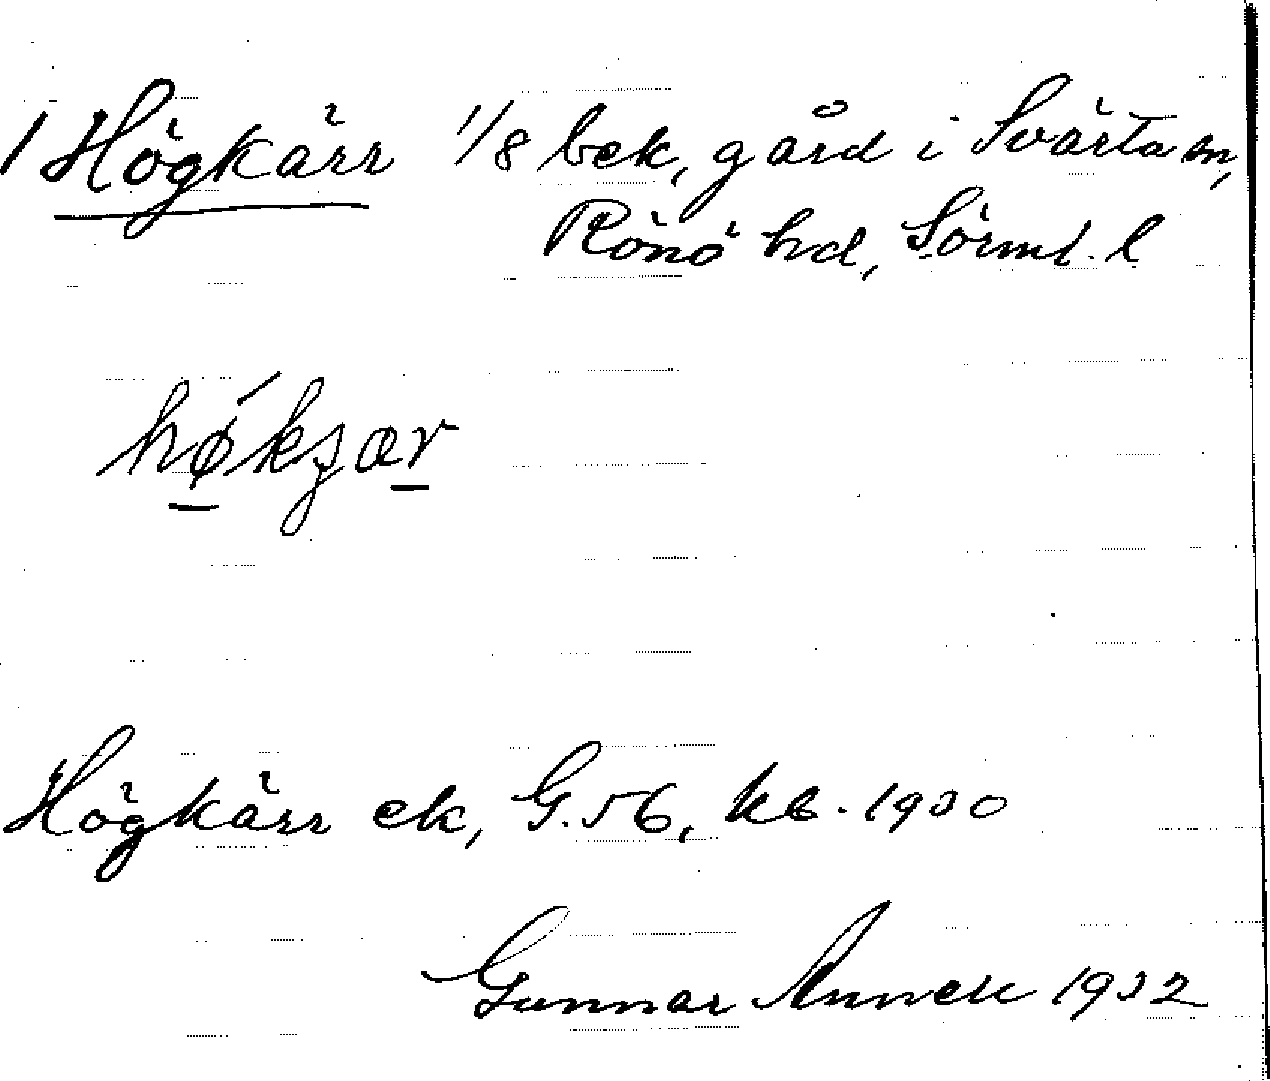 1 Högkärr 1/8 bek, gård i Svärta sn,
Rönö hd, Sörml. l
hǿkʒær
Högkärr ek, G.56, kb. 1930
Gunnar 1932